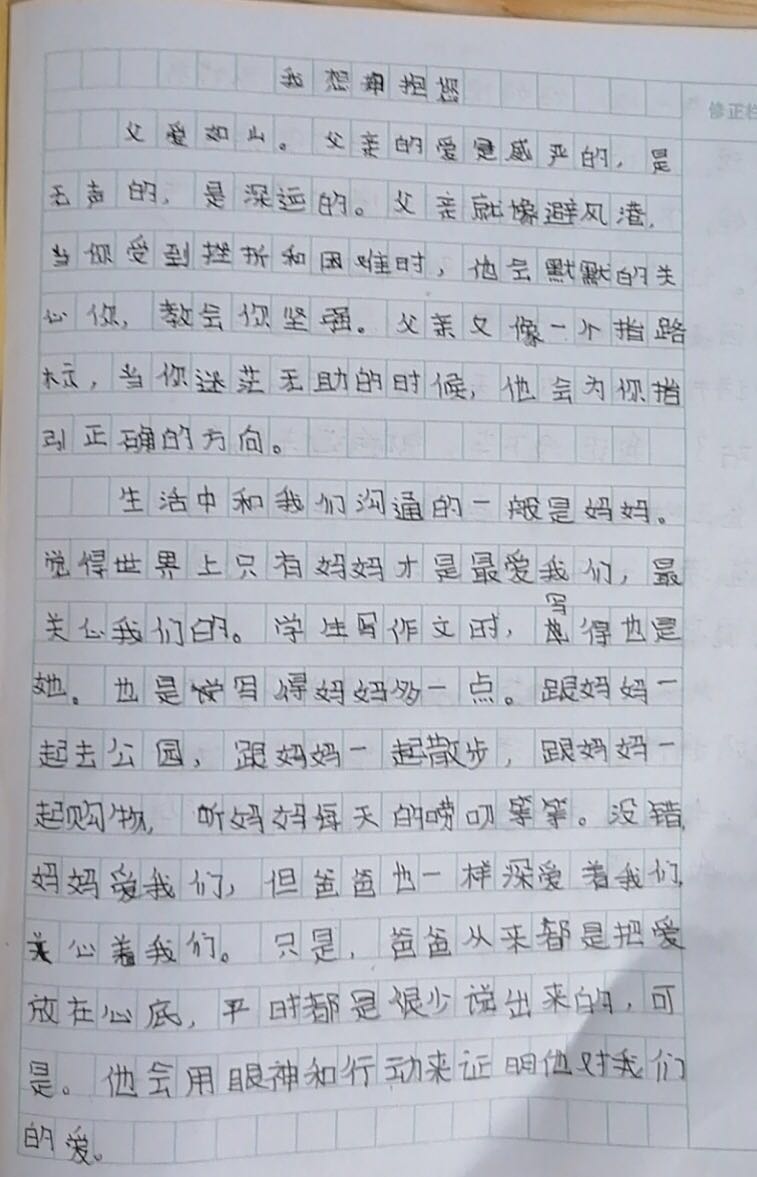 我想拥抱您
修正栏
父爱如山。父亲的爱是威严的，是
无声的，是深远的。父亲就像避风港，
当你受到挫折和困难时，他会默默的关
心你，教会你坚强。父亲又像一个指路
标，当你迷茫无助的时候，他会为你指
引正确的方向。
生活中和我们沟通的一般是妈妈。
觉得世界上只有妈妈才是最爱我们，最
关心我们的。学生写作文时，写得也是
她。也是写得妈妈多一点。跟妈妈一
起去公园，跟妈妈一起散步，跟妈妈一
起购物，听妈妈每天的唠叨等等。没错，
妈妈爱我们，但爸爸也一样深爱着我们，
关心着我们。只是，爸爸从来都是把爱
放在心底，平时都是很少说出来的，可
是。他会用眼神和行动来证明他对我们
的爱。